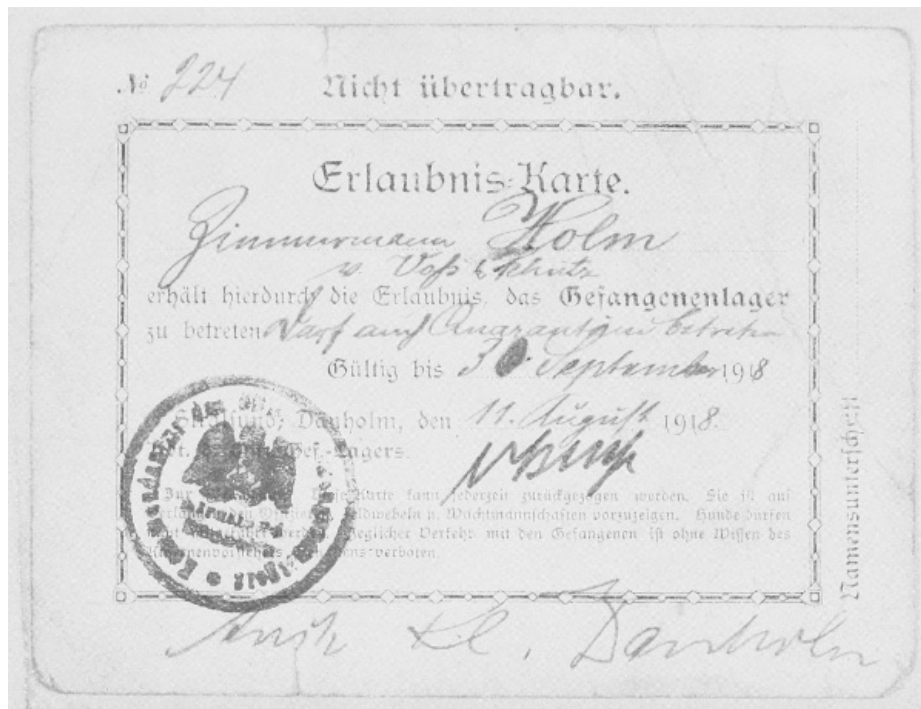 № 224 Nicht übertragbar.
Erlaubnis-Karte.
Zimmermann Holm
v. Voß & Schütz
erhält hierdurch die Erlaubnis, das Gefangenenlager
zu betreten. Darf auch Quarantäne betreten
Gültig bis 30. September 1918
Stralsund, Dänholm, den 11. August 1918.
Gef.-Lagers.
Diese Karte kann jederzeit zurückgezogen werden. Sie ist auf
Verlangen den Offizieren, Feldwebeln u. Wachtmannschaften vorzuzeigen. Hunde dürfen
nicht werden. Jeglicher Verkehr mit den Gefangenen ist ohne Wissen des
Kasernenvorstehers verboten.
Auch Kl. Dänholm
Namensunterschrift